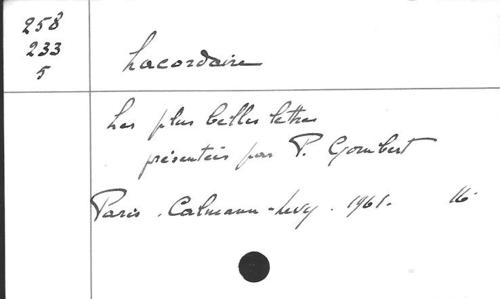 258
233
5
Lacordaire
Les plus belles lettres
présentées par P. Gombert
Paris. Calmann-Levy. 1961. 16